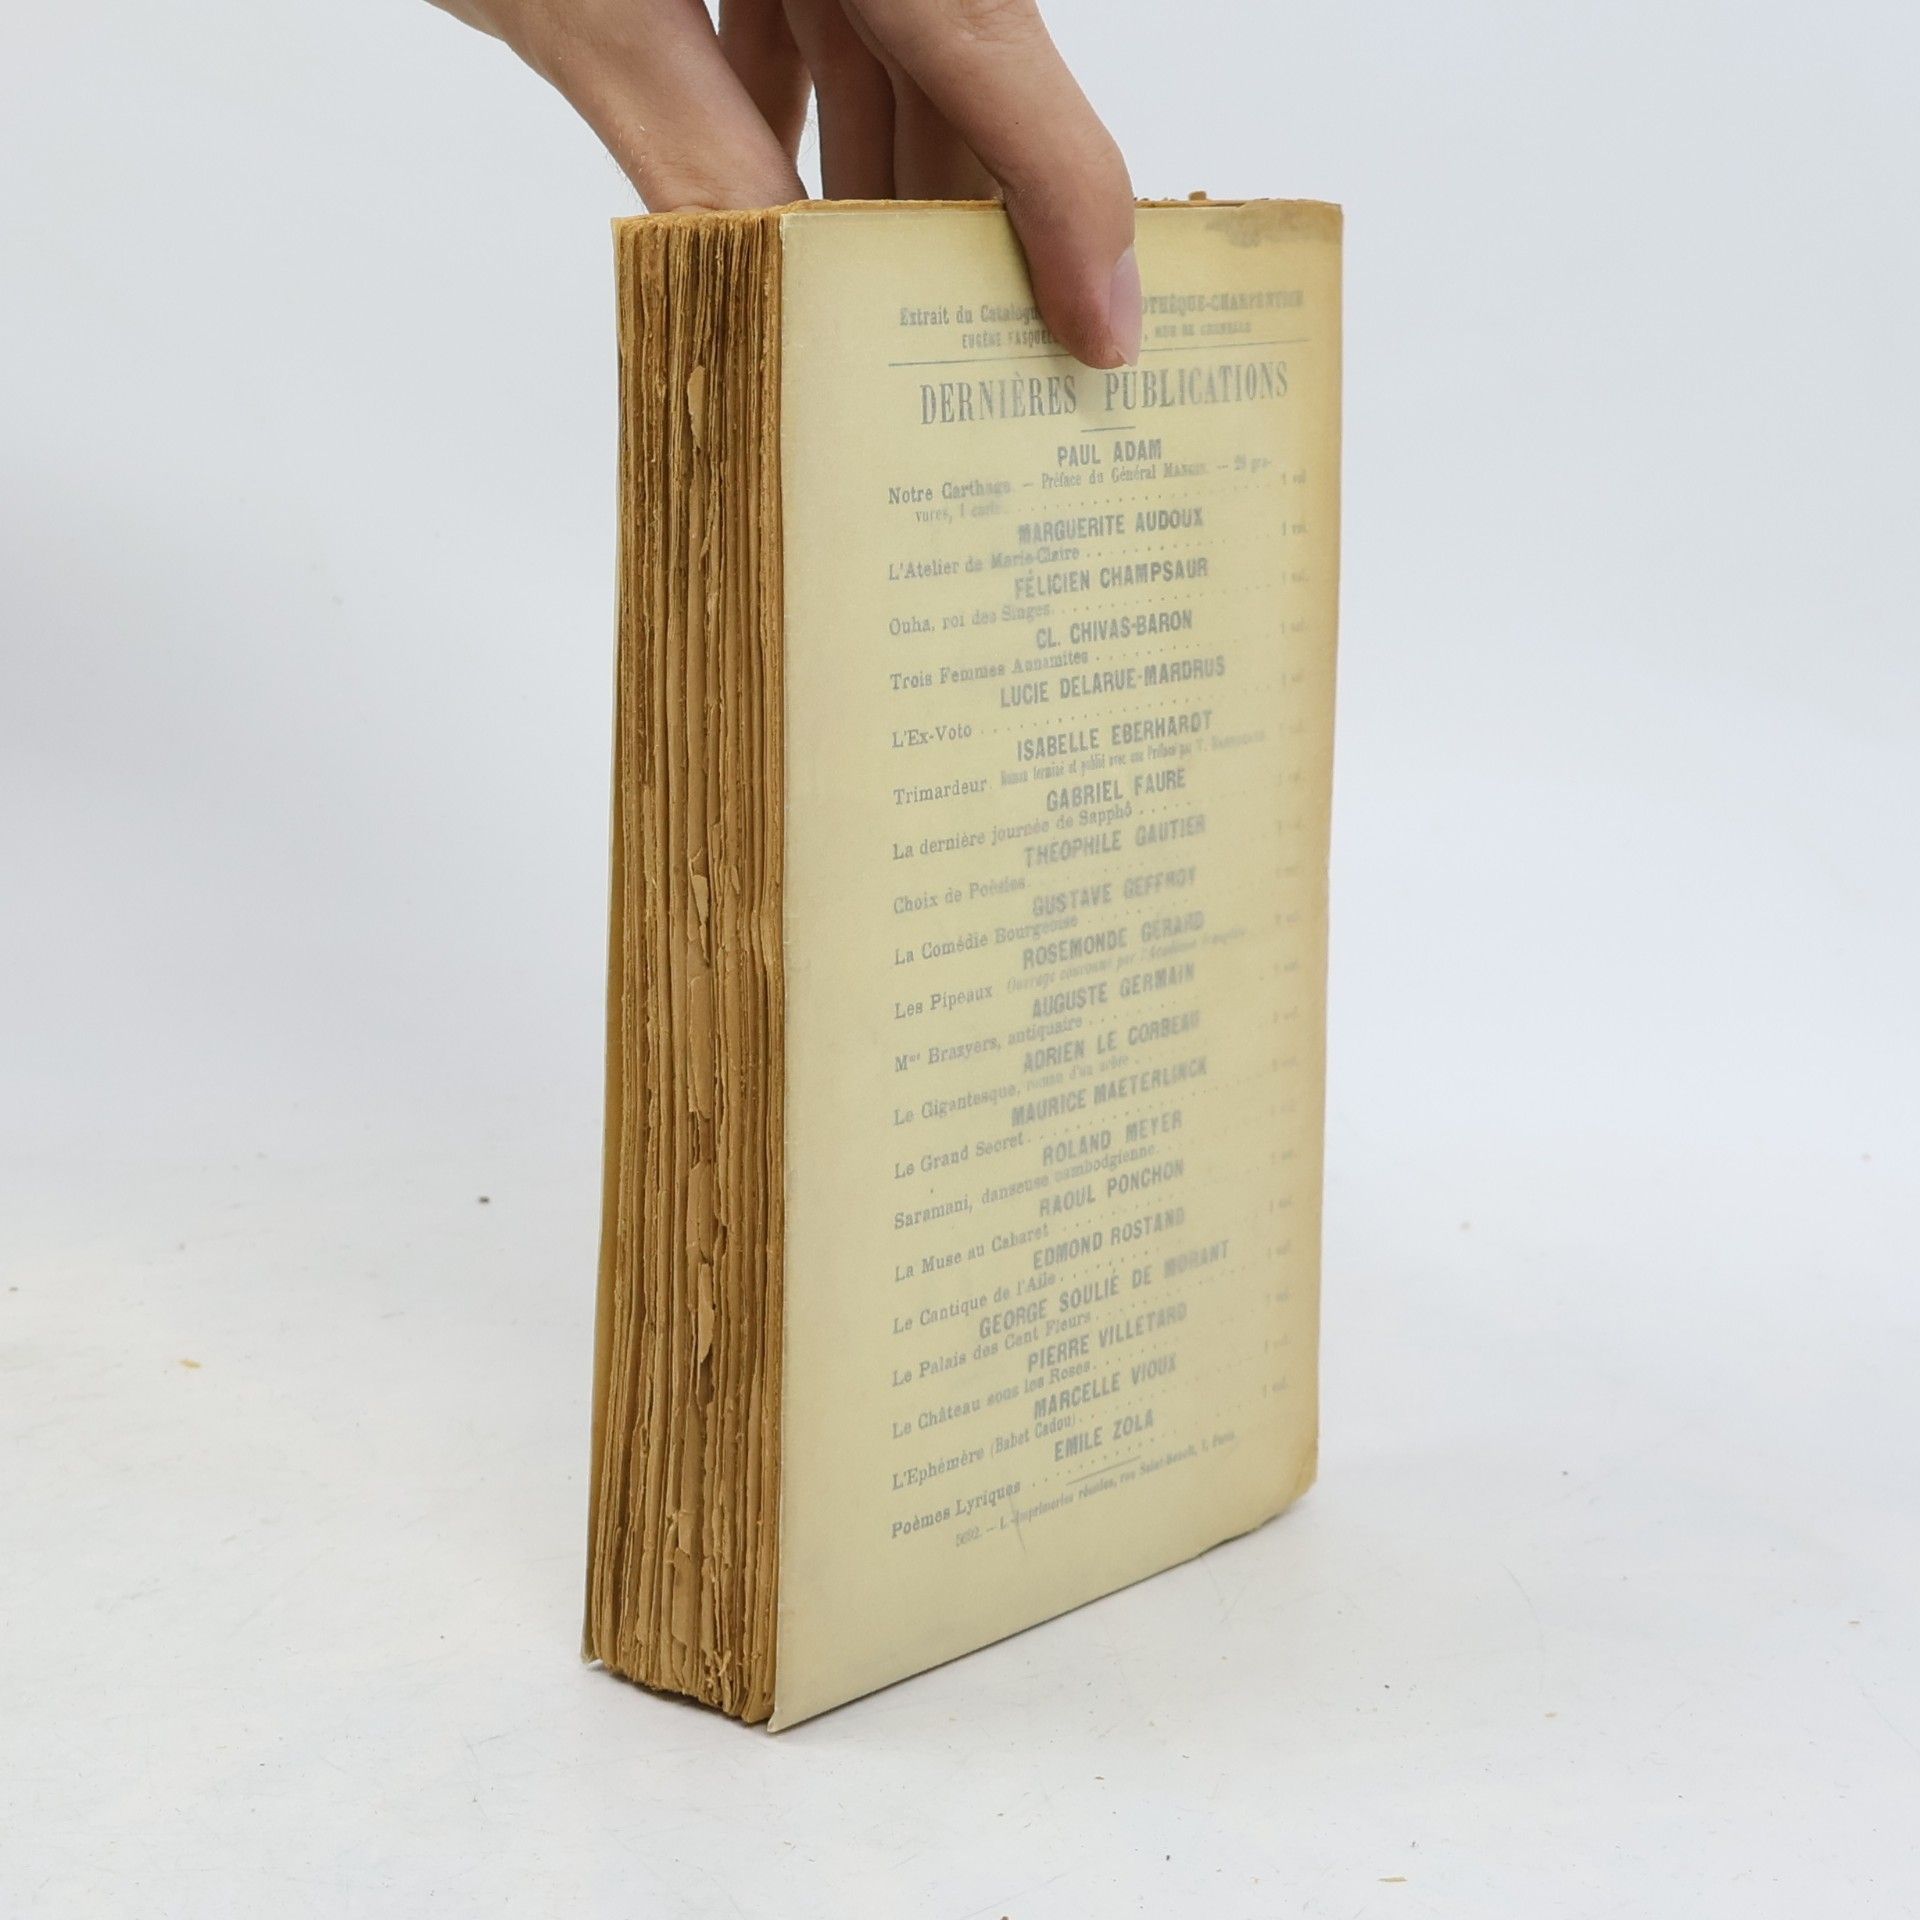 Extrait du Catalogue OTHÈQUE-CHARPENTIER
EUGÈNE FASQUELLE , RUE DE GRENELLE
DERNIÈRES PUBLICATIONS
PAUL ADAM
Notre Carthage. — Préface du Général MANGIN. — 28 gra-
vures, 1 carte . . . . . . . . . . . . . . . . 1 vol
MARGUERITE AUDOUX
L'Atelier de Marie-Claire . . . . . . . . . . . . 1 vol.
FÉLICIEN CHAMPSAUR
Ouha, roi des Singes. . . . . . . . . . . . . . . 1 vol.
CL. CHIVAS-BARON
Trois Femmes Annamites . . . . . . . . . . . . . 1 vol.
LUCIE DELARUE-MARDRUS
L'Ex-Voto . . . . . . . . . . . . . . . . . . . 1 vol.
ISABELLE EBERHARDT
Trimardeur. Roman terminé et publié avec une Préface par V. 1 vol.
GABRIEL FAURE
La dernière journée de Sapphô . . . . . . . . . . 1 vol.
THÉOPHILE GAUTIER
Choix de Poésies. . . . . . . . . . . . . . . . . 1 vol.
GUSTAVE GEFFROY
La Comédie Bourgeoise . . . . . . . . . . . . . . 1 vol.
ROSEMONDE GÉRARD
Les Pipeaux Ouvrage couronné par l'Académie française. 1 vol.
AUGUSTE GERMAIN
Mme Brazyers, antiquaire . . . . . . . . . . . . . 1 vol.
ADRIEN LE CORBEAU
Le Gigantesque, roman d'un arbre . . . . . . . . . 1 vol.
MAURICE MAETERLINCK
Le Grand Secret. . . . . . . . . . . . . . . . . 1 vol.
ROLAND MEYER
Saramani, danseuse cambodgienne. . . . . . . . . . 1 vol.
RAOUL PONCHON
La Muse au Cabaret . . . . . . . . . . . . . . . 1 vol.
EDMOND ROSTAND
Le Cantique de l'Aile . . . . . . . . . . . . . . 1 vol.
GEORGE SOULIÉ DE MORANT
Le Palais des Cent Fleurs. . . . . . . . . . . . . 1 vol.
PIERRE VILLETARD
Le Château sous les Roses. . . . . . . . . . . . . 1 vol.
MARCELLE VIOUX
L'Ephémère (Babet Cadou). . . . . . . . . . . . . 1 vol.
EMILE ZOLA
Poèmes Lyriques . . . . . . . . . . . . . . . . . 1 vol.
5692. — L.-Imprimeries réunies, rue Saint-Benoît, 7, Paris